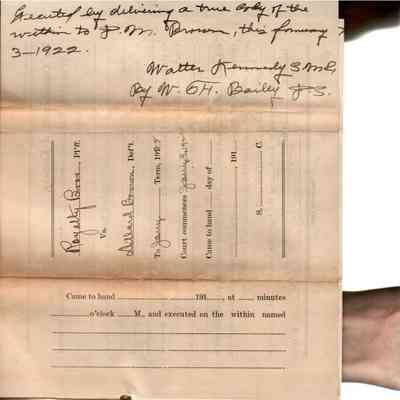 Executed by delivering a true copy of the
within to J. M. Brown, this January
3-1922.
Walter Kennedy
By W. H. Bailey
Royalty Bros., Pl'ff.
Vs.
Dillard Brown, Def't.
To Jany Term, 192
Court commences
Came to hand day of
, 191
S. C.
Came to hand 191 , at minutes
o'clock M., and executed on the within named